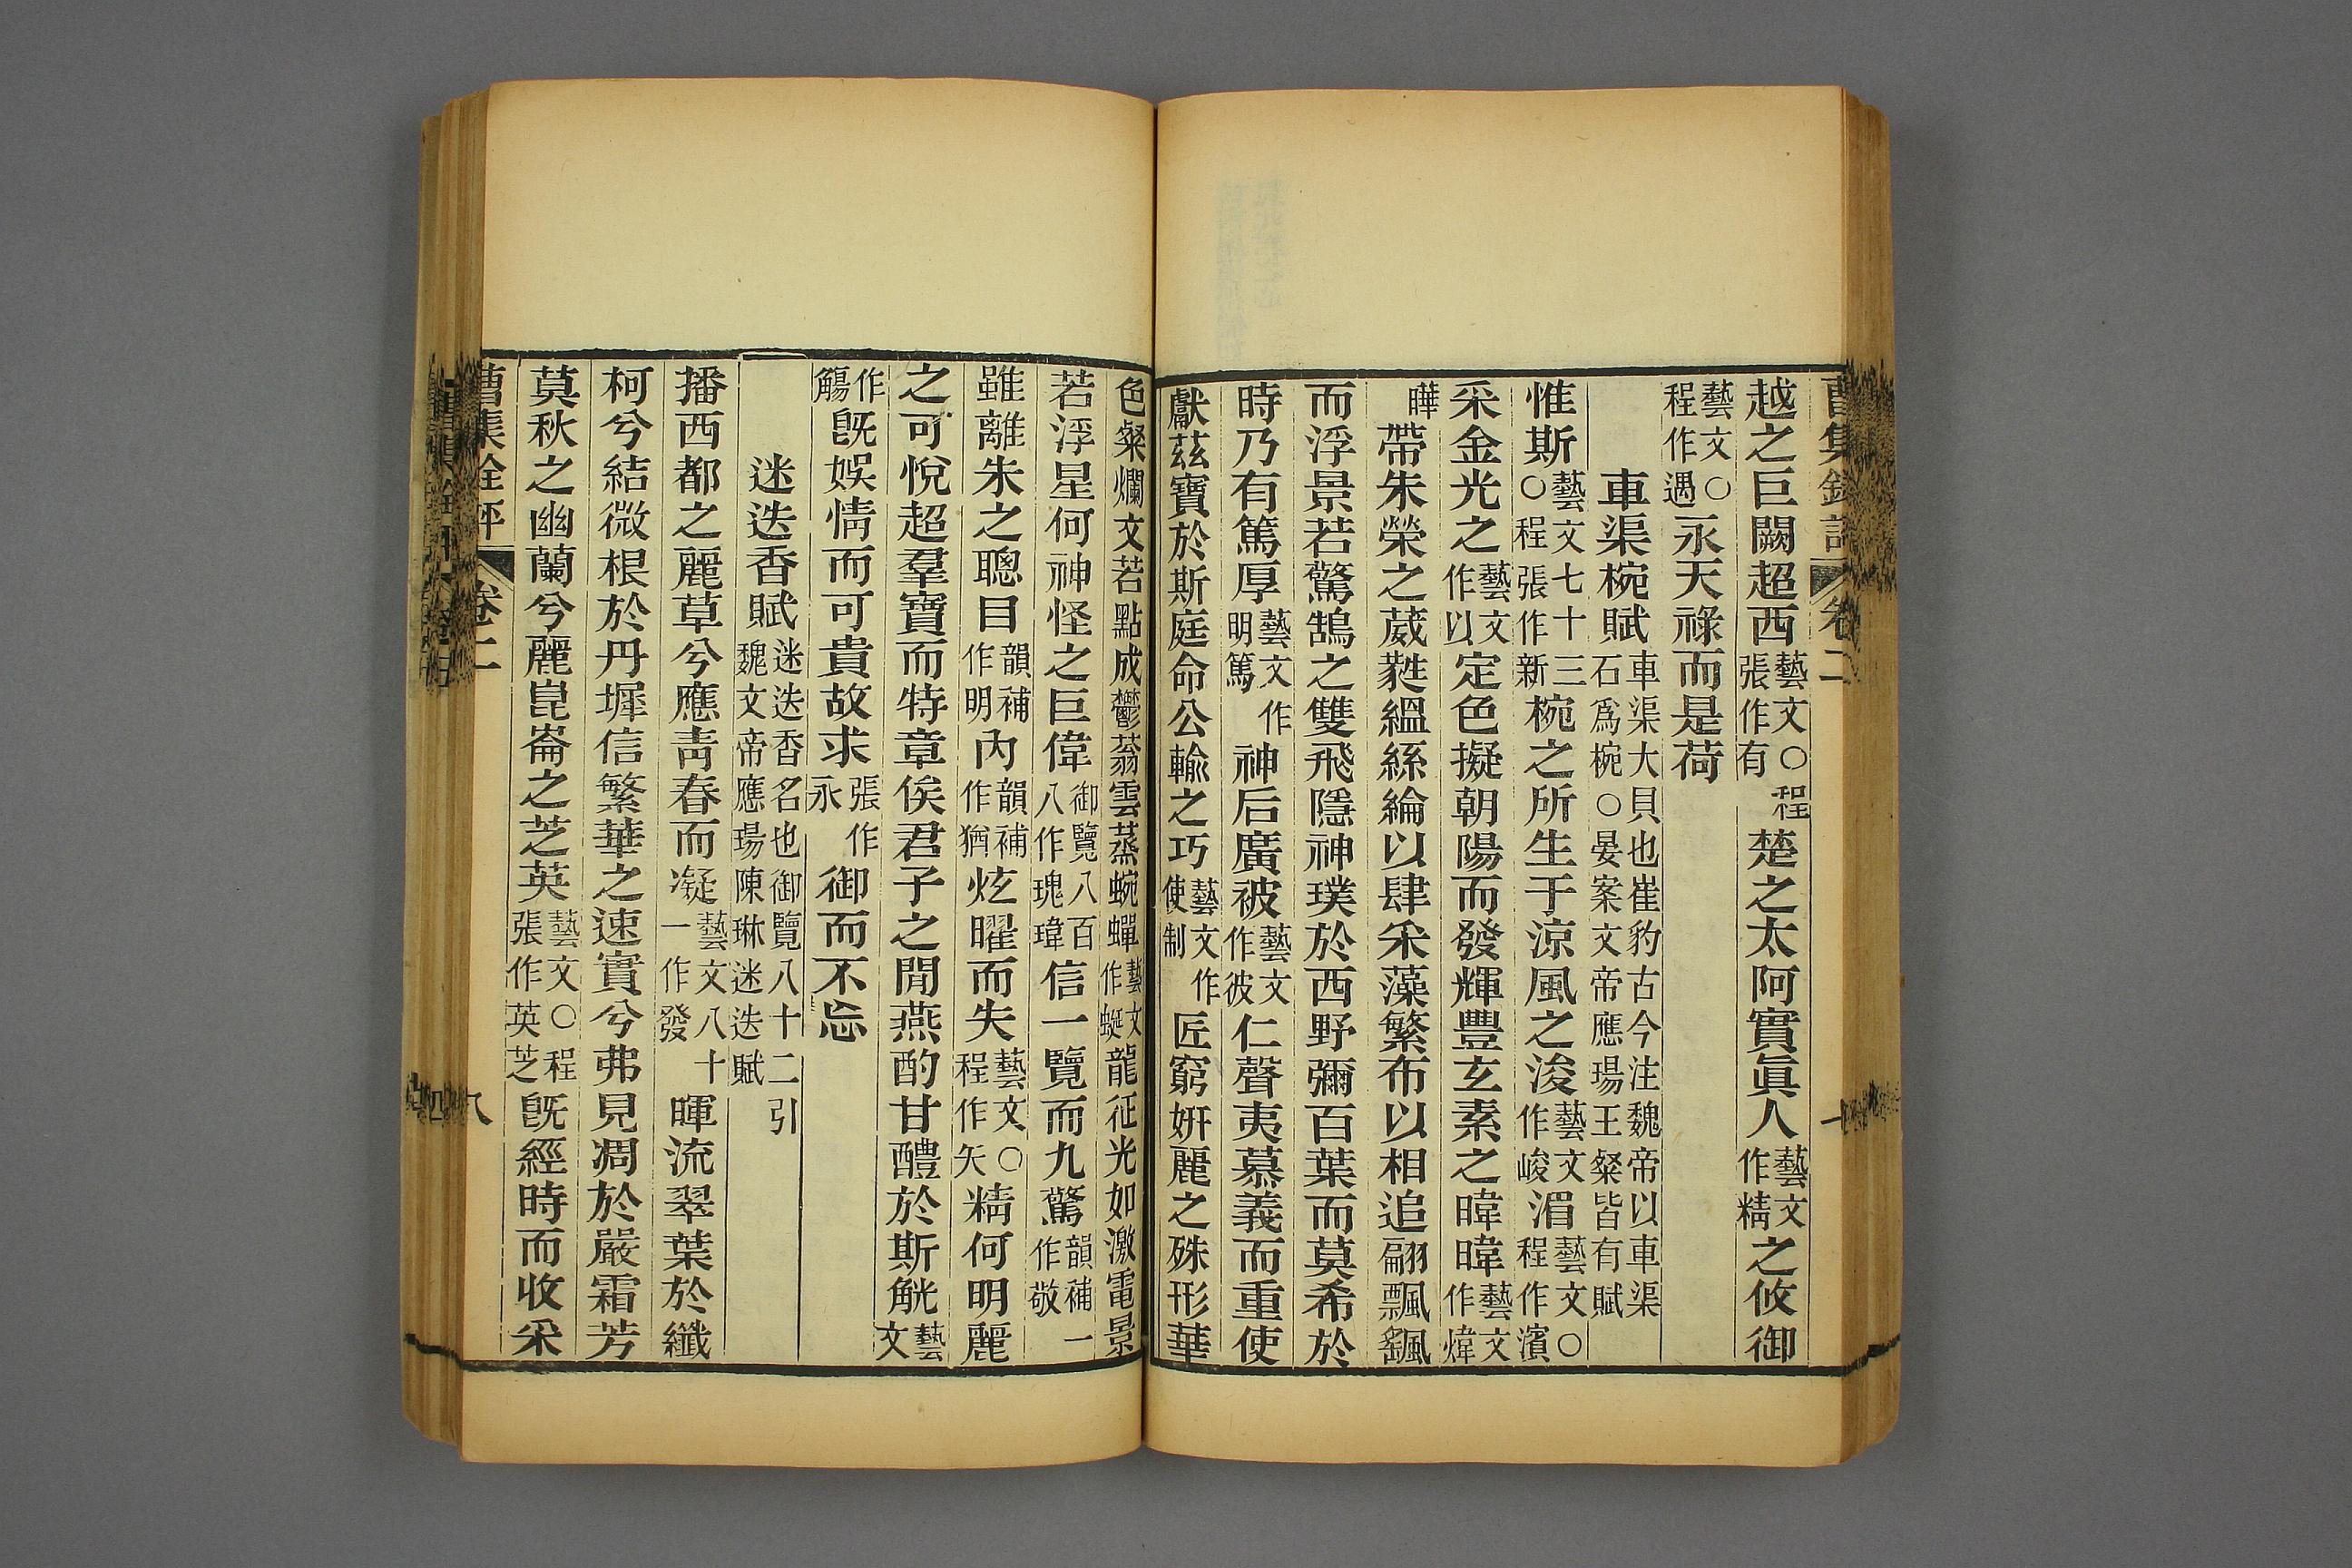 越之巨闕超西藝文〇程張作有楚之太阿實眞人藝文作精之攸御
藝文〇程作遇永天祿而是荷
車渠椀賦車渠大貝也崔豹古今注魏帝以車渠石爲椀〇晏案文帝應瑒王粲皆有賦
惟斯藝文七十三〇程張作新椀之所生于涼風之浚藝文作峻湄藝文〇程作濱
采金光之藝文作以定色擬朝陽而發輝豐玄素之暐曄藝文作煒
曄帶朱榮之葳蕤縕絲綸以肆采藻繁布以相追翩飄颻
而浮景若驚鵠之雙飛隱神璞於西野彌百葉而莫希於
時乃有篤厚藝文作明篤神后廣被藝文作彼仁聲夷慕義而重使
獻茲寶於斯庭命公輸之巧藝文作使制匠窮妍麗之殊形華
色粲爛文若點成鬱蓊雲蒸蜿蟬藝文作蜒龍征光如激電景
若浮星何神怪之巨偉御覽八百八作瑰瑋信一覽而九驚韻補一作敬
雖離朱之聰目韻補作明內韻補作猶炫曜而失藝文〇程作矢精何明麗
之可悅超羣寶而特章俟君子之閒燕酌甘醴於斯觥藝文
作觴旣娛情而可貴故求張作永御而不忘
迷迭香賦迷迭香名也御覽八十二引魏文帝應瑒陳琳迷迭賦
播西都之麗草兮應靑春而凝藝文八十一作發暉流翠葉於纖
柯兮結微根於丹墀信繁華之速實兮弗見凋於嚴霜芳
莫秋之幽蘭兮麗崑崙之芝英藝文〇程張作英芝旣經時而收采
曹集詮評 卷二 八